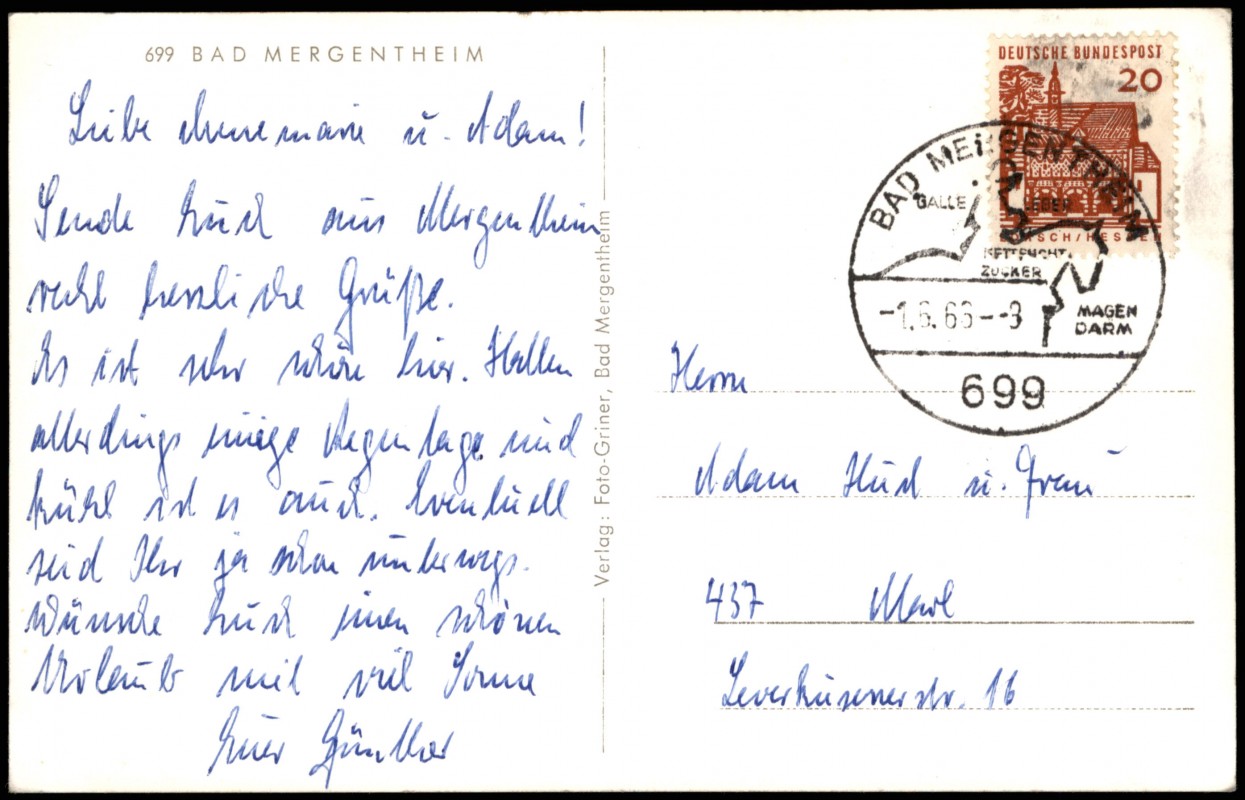 699 BAD MERGENTHEIM
Liebe Annemarie u. Adam!
Sende Euch aus Mergentheim
recht herzliche Grüße.
Es ist sehr schön hier. Hatten
allerdings einige Regentage und
kühl ist es auch. Eventuell
seid Ihr ja schon unterwegs.
Wünsche Euch einen schönen
Urlaub mit viel Sonne
Euer Günther
Verlag: Foto-Griner, Bad Mergentheim
DEUTSCHE BUNDESPOST
20
BAD MERGENTHEIM
GALLE LEBER
FETTSUCHT
ZUCKER
MAGEN
DARM
699
Herrn
Adam u. Frau
437 Marl
Leverkusenerstr. 16